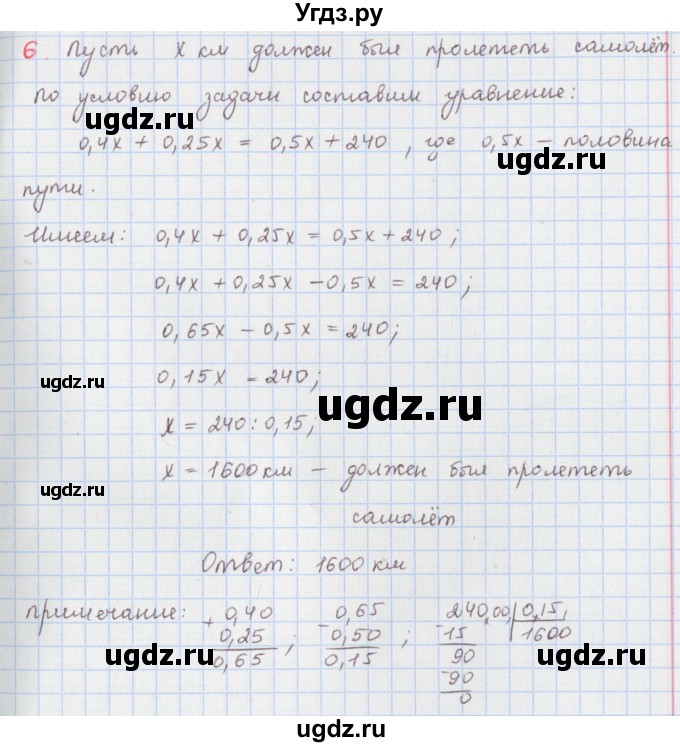 Угдз.ру
6. Пусть x км должен был пролететь самолёт.
По условию задачи составим уравнение:
ugdz.ru ugdz.ru
0,4x + 0,25x = 0,5x + 240, где 0,5x – половина
пути.
ugdz.ru ugdz.ru
Имеем: 0,4x + 0,25x = 0,5x + 240;
0,4x + 0,25x - 0,5x = 240;
0,65x - 0,5x = 240;
ugdz.ru
0,15x = 240;
ugdz.ru
x = 240 : 0,15;
x = 1600 км – должен был пролететь
ugdz.ru
самолёт
Ответ: 1600 км
примечание: + 0,40 - 0,65 240,00, | 0,15,
0,25 ; - 0,50 ; - 15 1600
0,65 0,15 90
ugdz.ru ugdz.ru
- 90
0
ugdz.ru